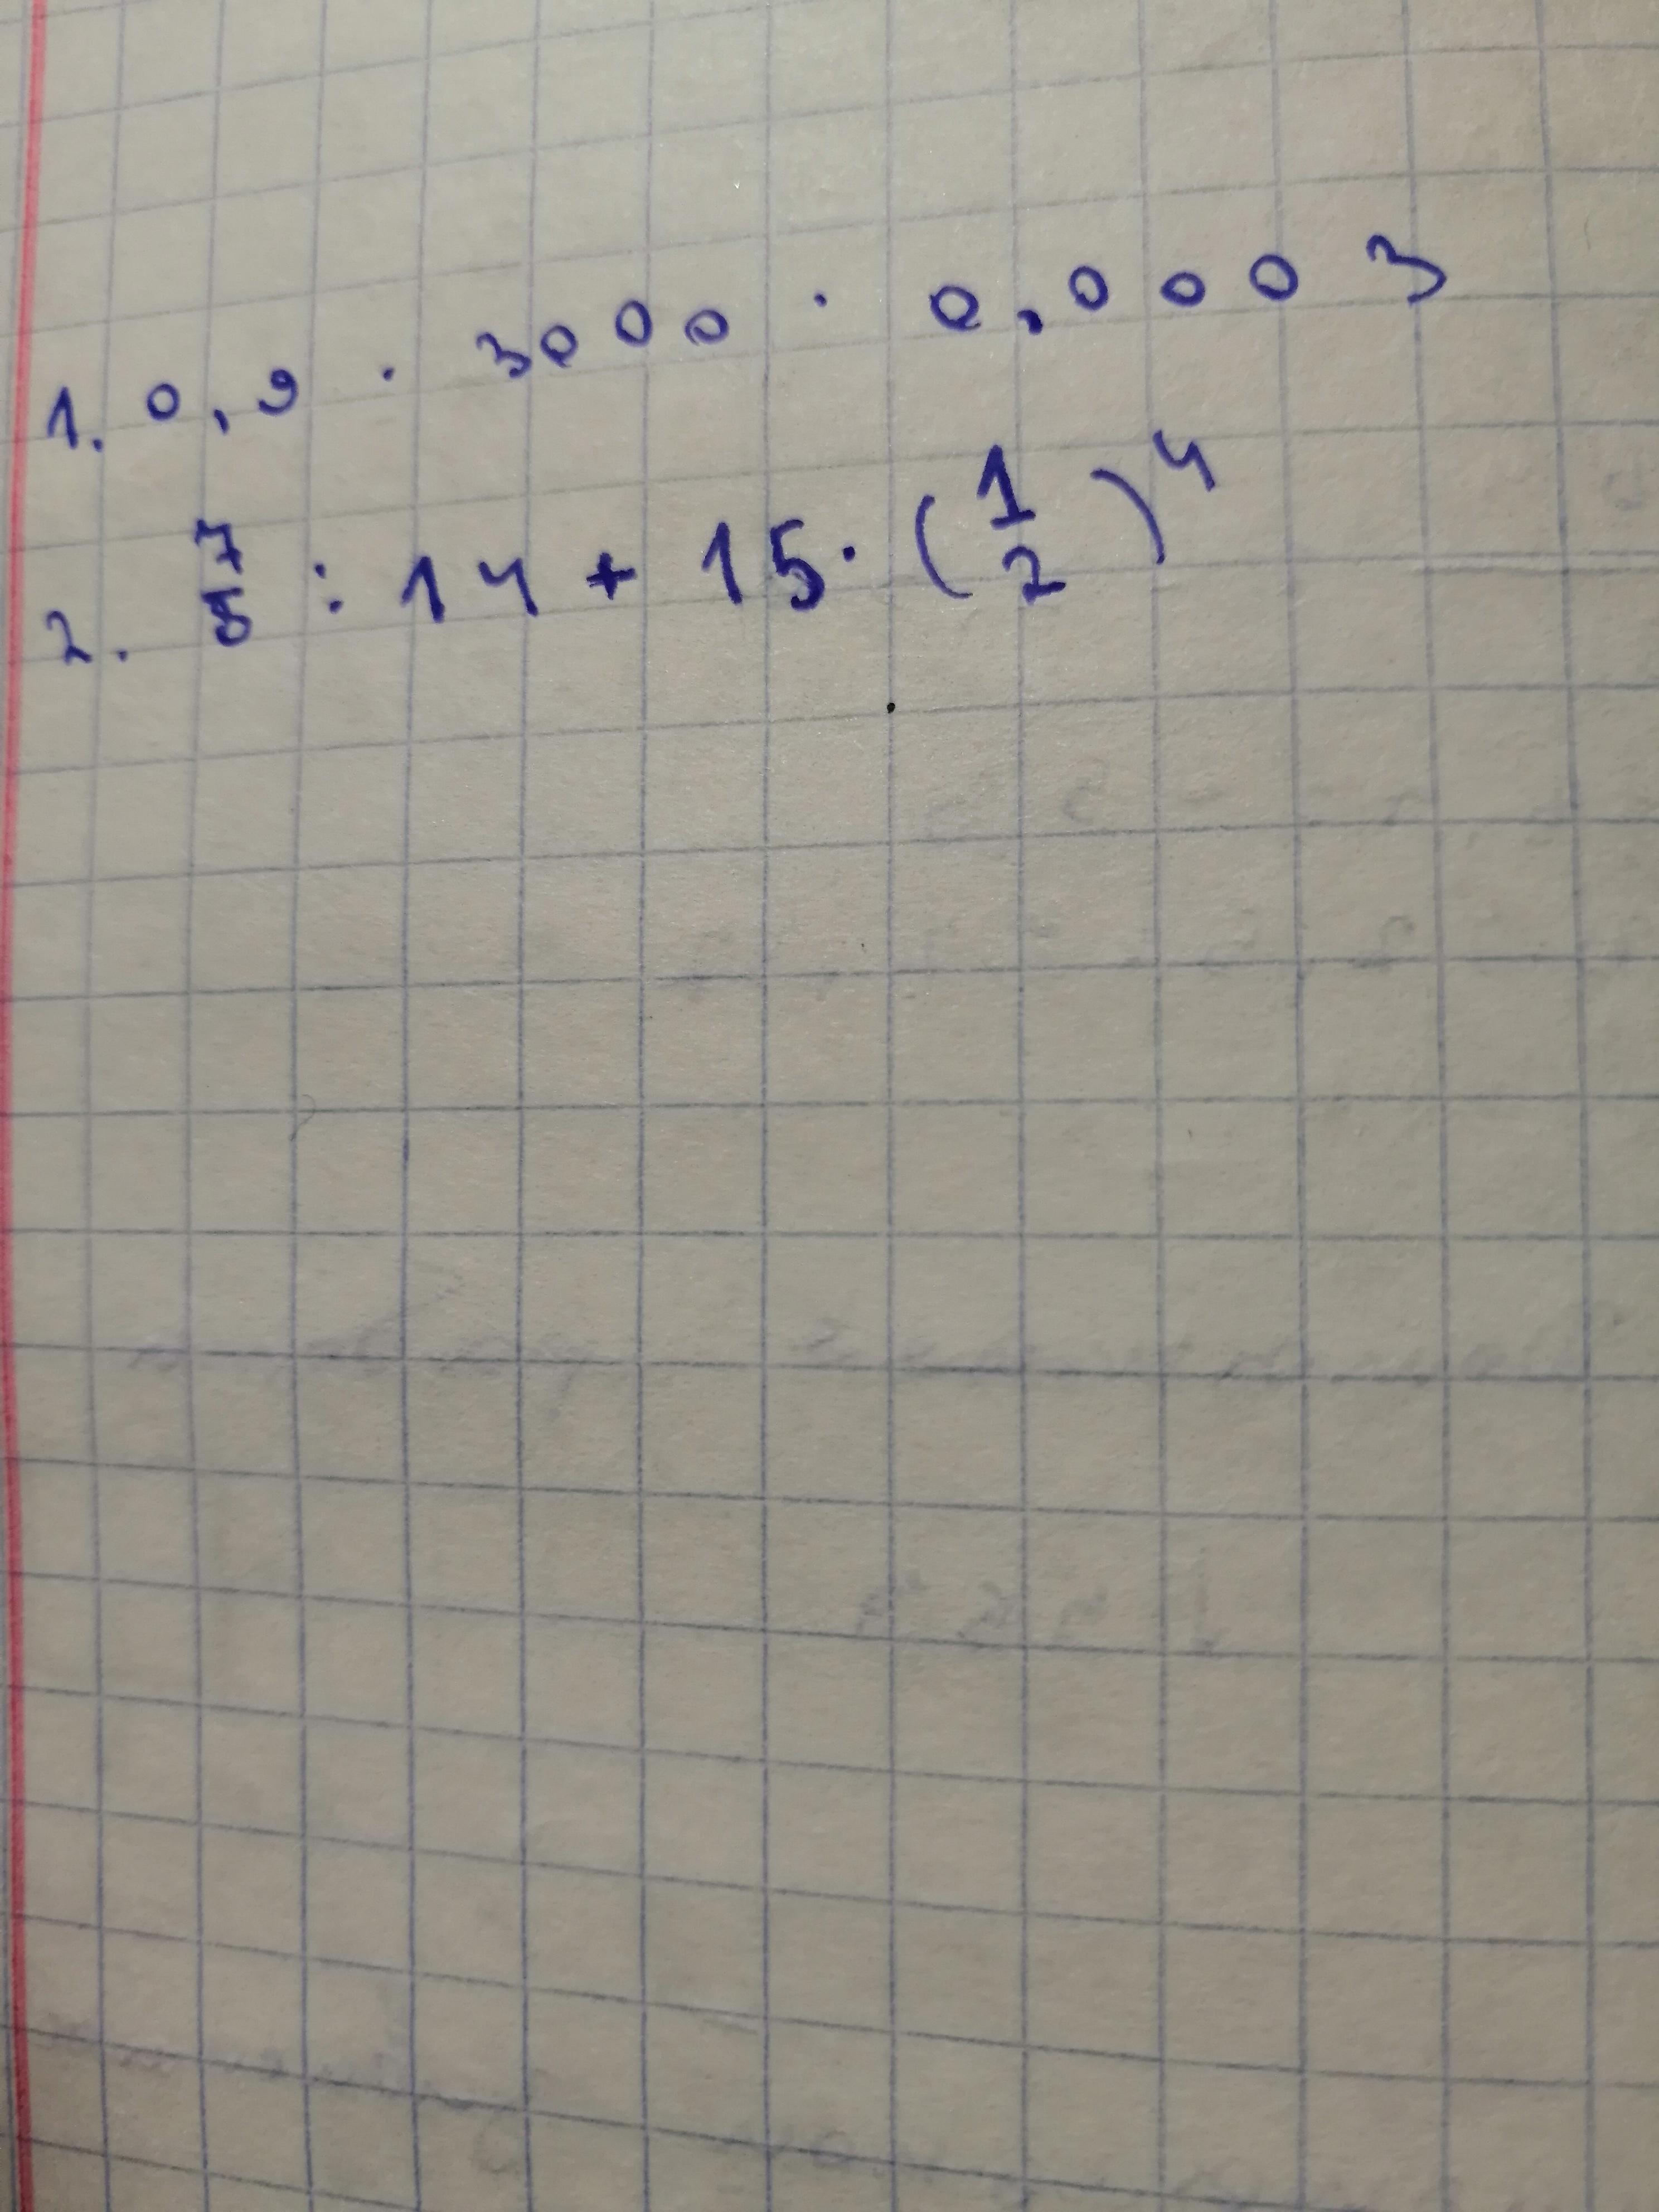 1. 0,9 · 3000 · 0,0003
2. 7/5 : 14 + 15 · (1/2)^4